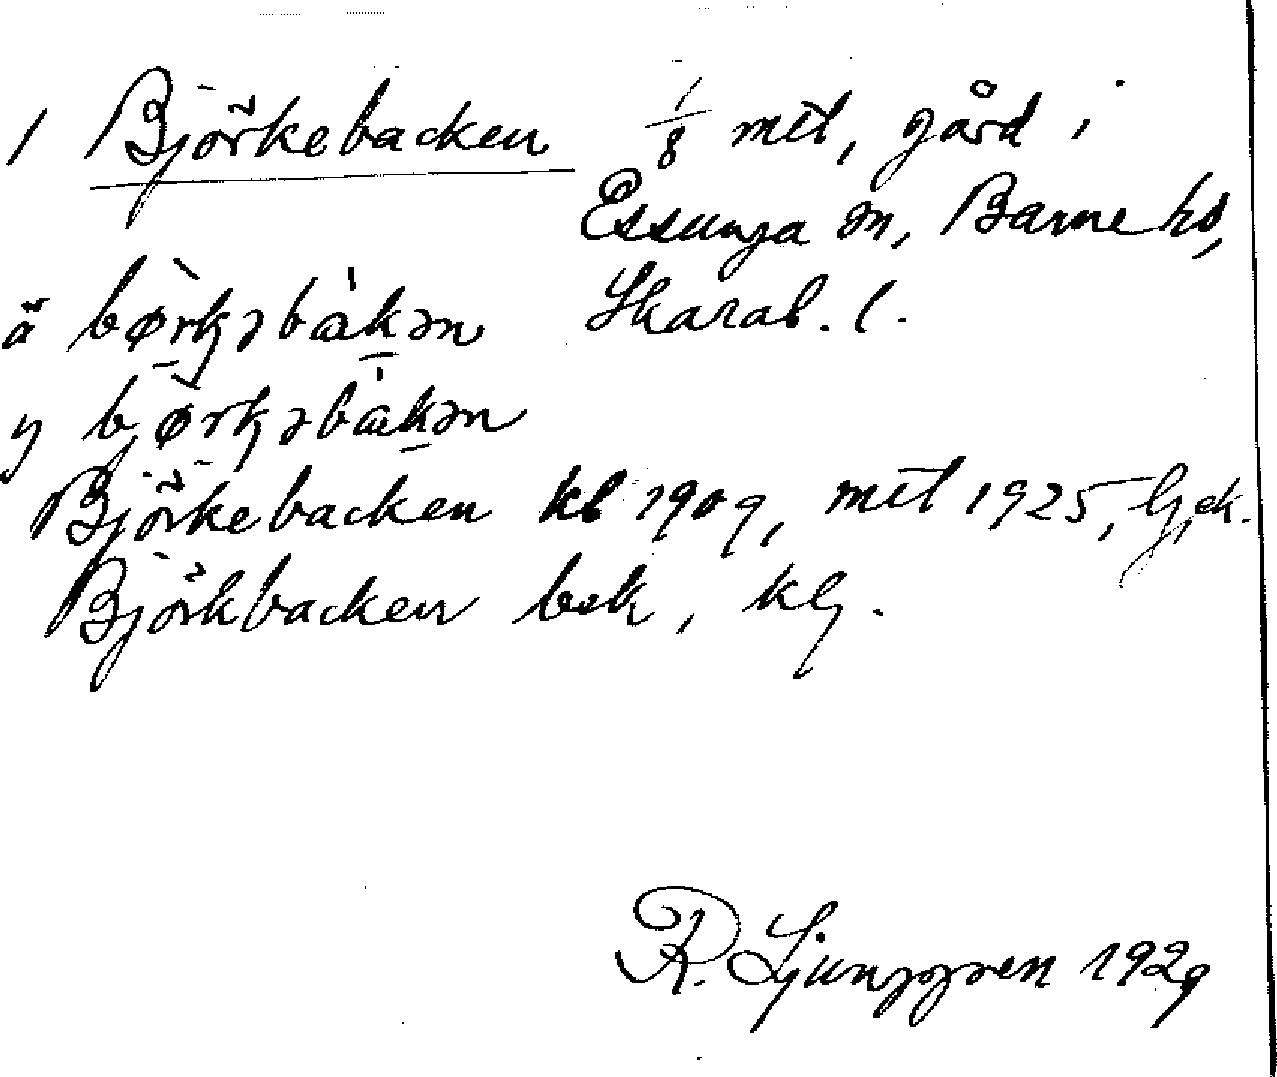 1 Björkebacken 1/8 mtl, gård i
Essunga sn, Barne hd,
Skarab. l.
ä
y
Björkebacken kb 1909, mtl 1925, Gek.
Björkbacken bek, kg.
R. Ljunggren 1929